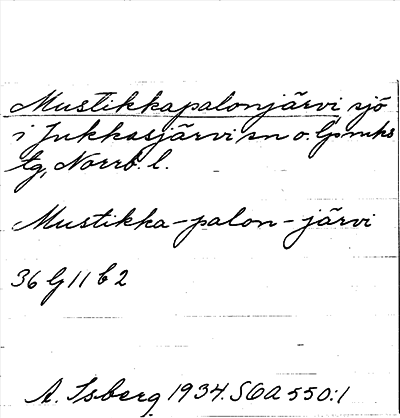 Mustikkapalonjärvi, sjö
i Jukkasjärvi sn o. lpmks
tg, Norrb. l.
Mustikka-palon-järvi
36 lj 11 b 2
A. Isberg 1934. SOA 550:1